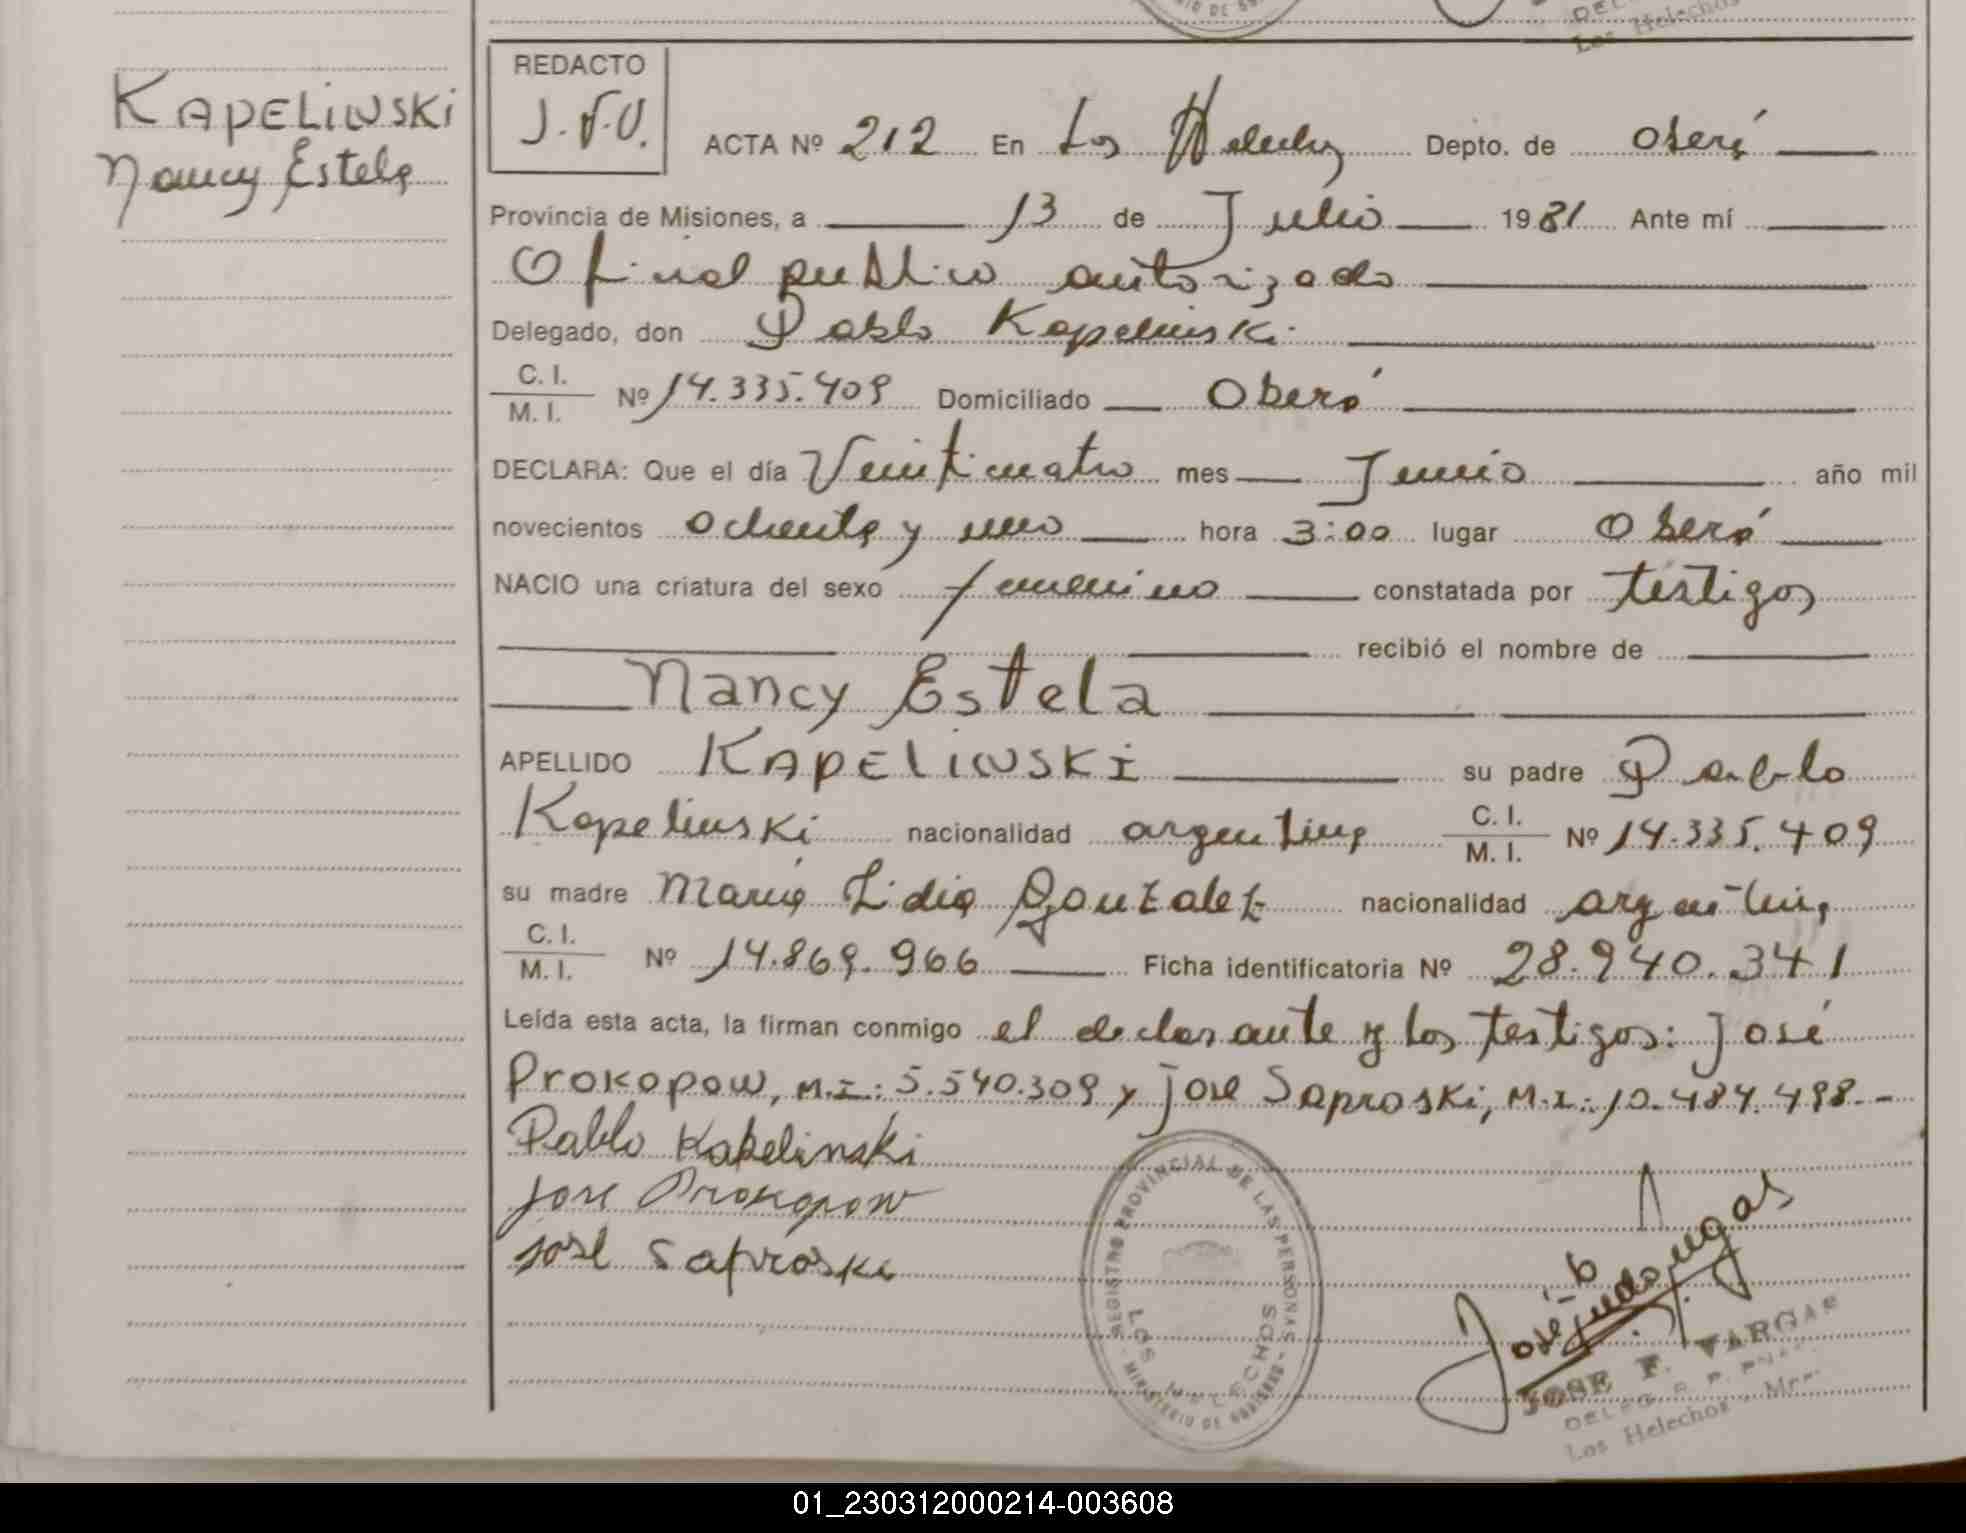 KAPELINSKI
Nancy Estela
REDACTO
J.F.V.
ACTA Nº 212 En Los Helechos Depto. de Oberá
Provincia de Misiones, a 13 de Julio 1981 Ante mí
Oficial publico autorizado
Delegado, don Pablo Kapelinski
C. I.
M. I. Nº 14.335.409 Domiciliado Oberá
DECLARA: Que el día Veinticuatro mes Junio año mil
novecientos ochenta y uno hora 3:00 lugar Oberá
NACIO una criatura del sexo femenino constatada por testigos
recibió el nombre de
Nancy Estela
APELLIDO KAPELINSKI su padre Pablo
Kapelinski nacionalidad argentina C. I. M. I. Nº 14.335.409
su madre María Lidia Gonzalez nacionalidad argentina
C. I.
M. I. Nº 14.869.966 Ficha identificatoria Nº 28.940.341
Leída esta acta, la firman conmigo el declarante y los testigos: José
Prokopow, M.I.: 5.540.309 y José Saproski, M.I.: 10.484.498.-
Pablo Kapelinski
José Prokopow
José Saproski
REGISTRO PROVINCIAL DE LAS PERSONAS - MINISTERIO DE GOBIERNO -
LOS HELECHOS
JOSE F. VARGAS
Los Helechos
01_230312000214-003608